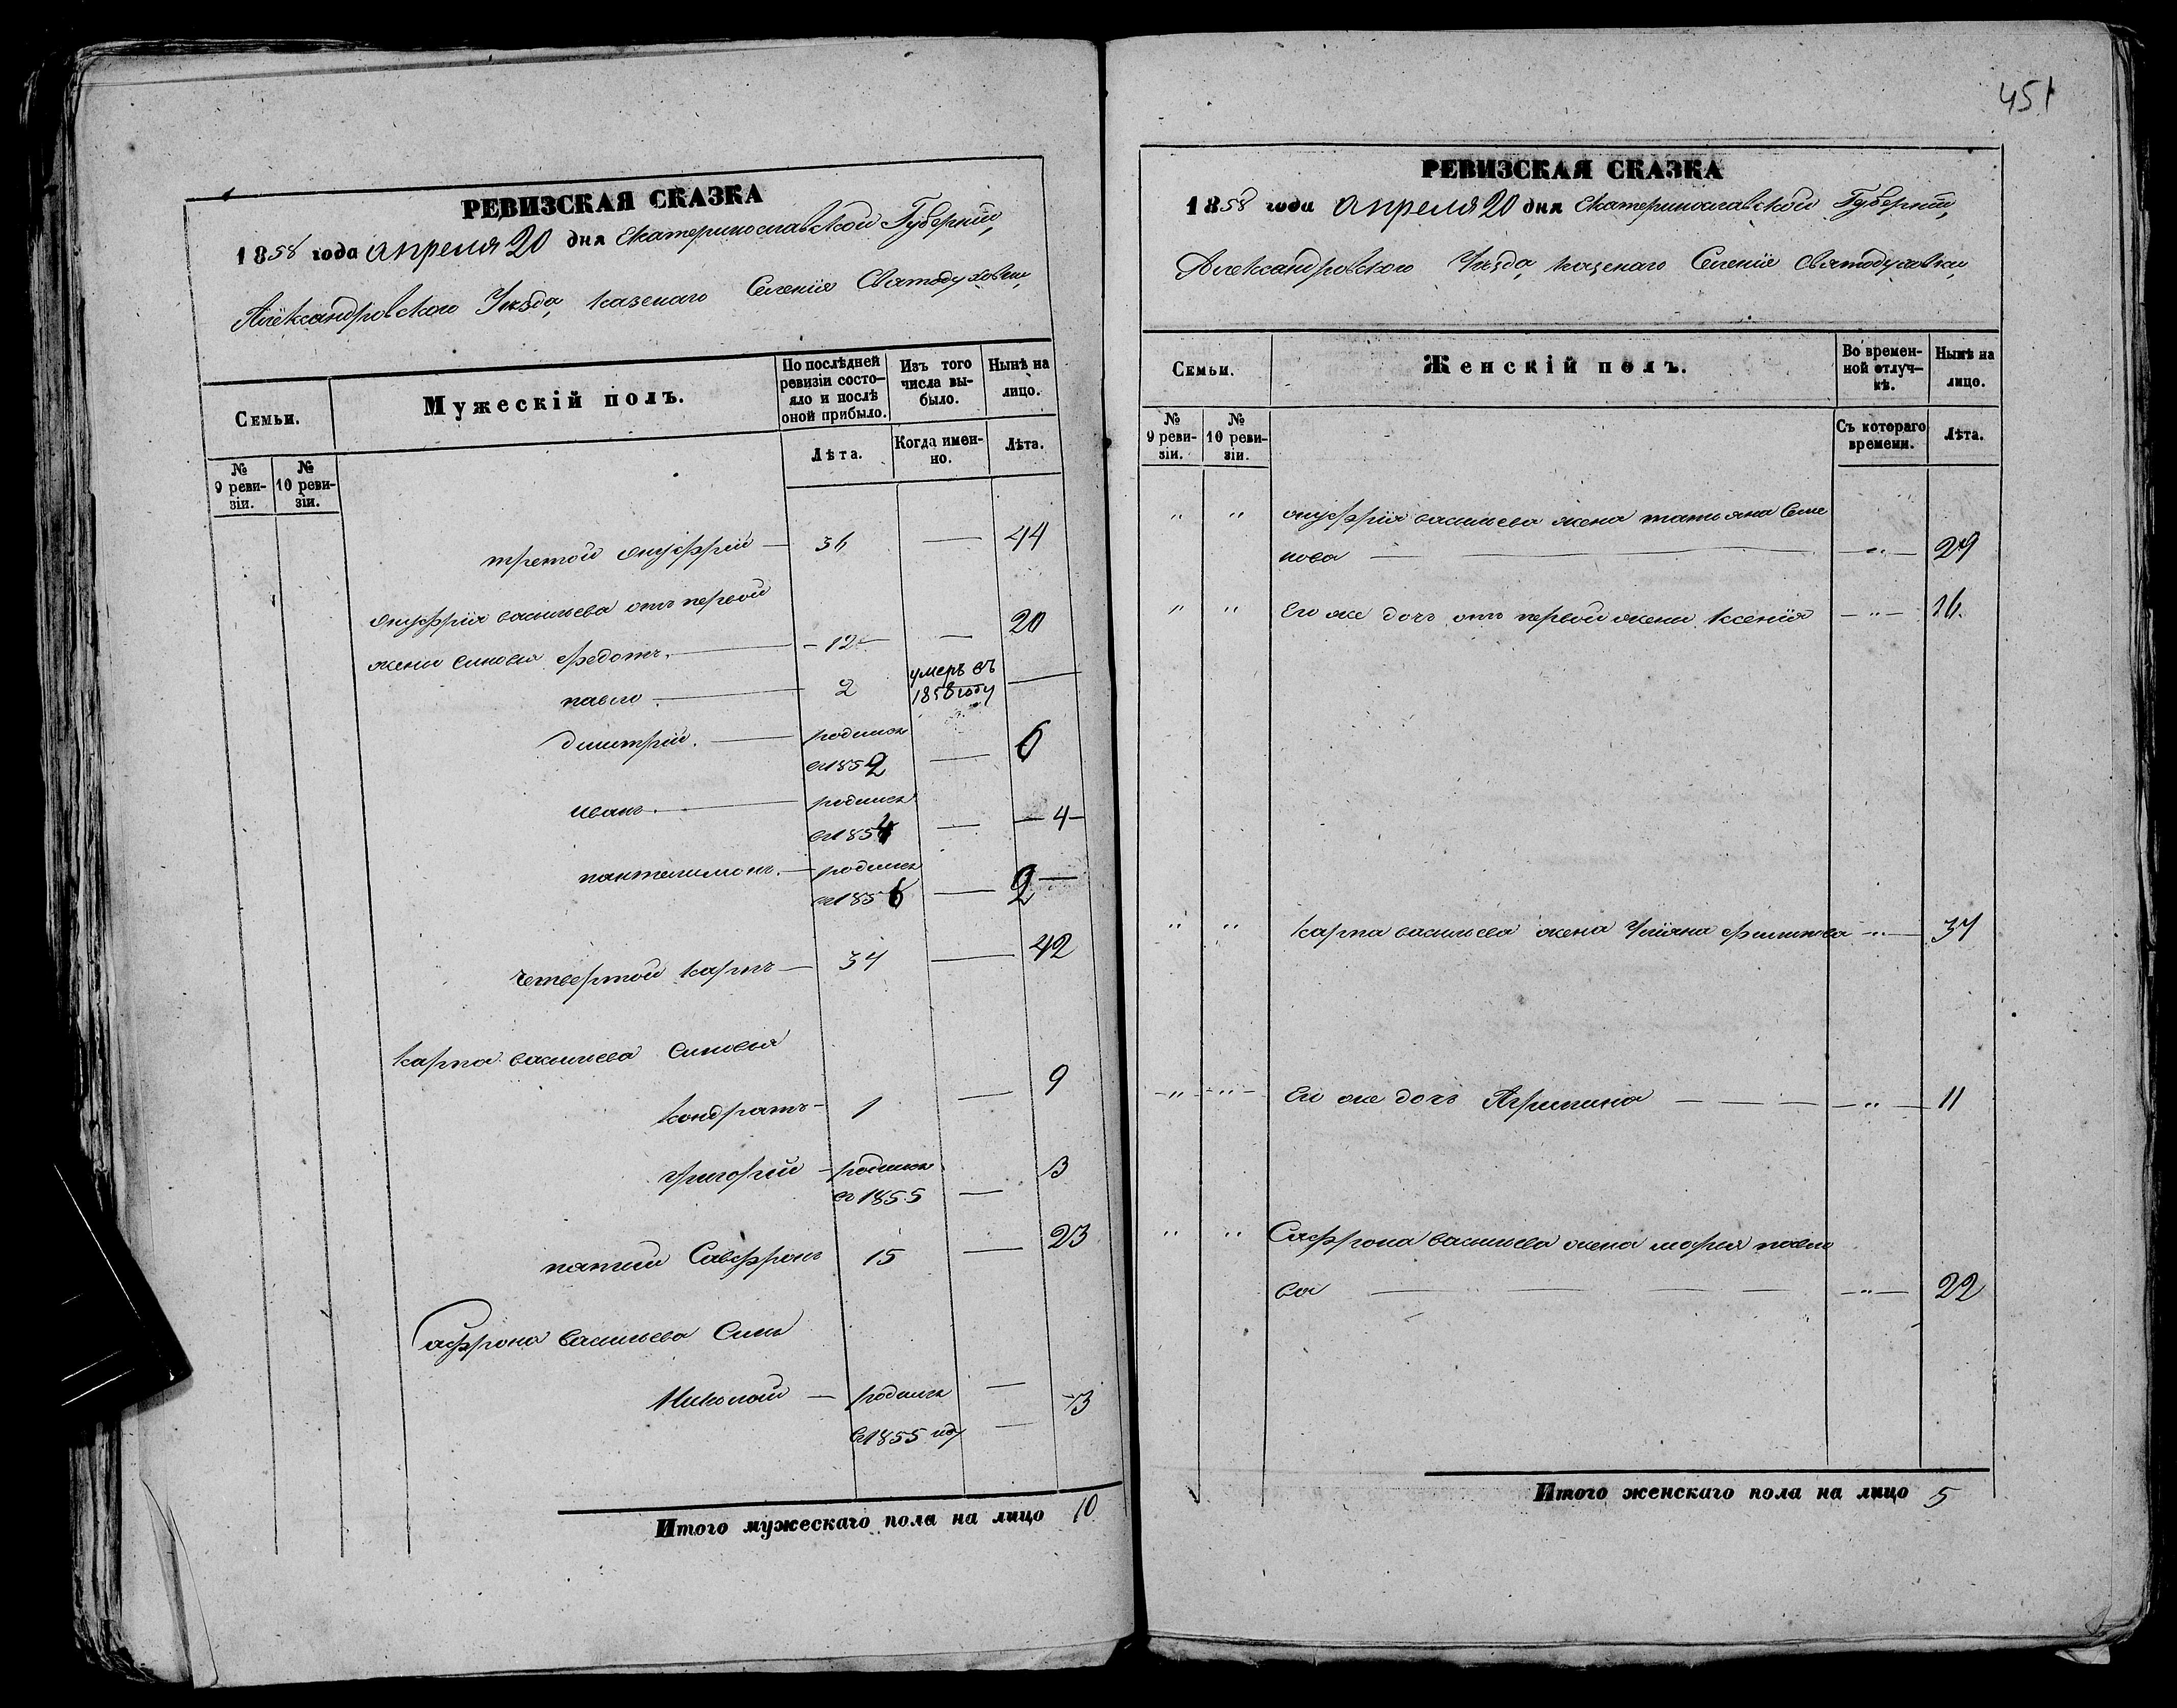 РЕВИЗСКАЯ СКАЗКА
1858 года апреля 20 дня Екатеринославской Губерніи,
Александровского Уезда, казенаго Селенія Святодуховки,
Семьи.
Мужескій полъ.
По послѣдней ревизіи состояло и послѣ оной прибыло.
Изъ того числа выбыло.
Нынѣ на лицо.
№ 9 ревизіи.
№ 10 ревизіи.
Лѣта.
Когда именно.
Лѣта.
третой Онуфрій — 36 — 44
Онуфрія васильева отъ первой
жени синовя Федотъ. — 12 — 20
павло — 2 умеръ въ 1858 году —
димитрій. — родился
въ 1852 — 6
иванъ — родился
въ 1854 — 4 —
пантелимонъ. — родился
въ 1856 — 2 —
четвертой карпъ — 34 — 42
карпа васильева синовья
кондратъ — 1 — 9
григорій — родился
въ 1855 — 3
пятий Савфронъ 15 — 23
Сафрона Васильева Синъ
Николай — родился —
въ 1855 году — 3
Итого мужескаго пола на лицо 10
451
РЕВИЗСКАЯ СКАЗКА
1858 года апреля 20 дня Екатеринославской Губерніи,
Александровского Уезда, казенаго Селенія Святодуховки,
Семьи.
Женскій полъ.
Во временной отлучкѣ.
Нынѣ на лицо.
№ 9 ревизіи.
№ 10 ревизіи.
Съ котораго времени.
Лѣта.
" " онуфрія васильева жена татьяна Семе
нова — " — 29
" " Его же дочь отъ первой жени Ксенія — " — 16
" " карпа васильева жена Уліяна филипова — " — 37
— " — " — Его же дочь Агрипина — — — " — 11
" " Сафрона васильева жена марія павло
ва — — — " — 22
Итого женскаго пола на лицо 5